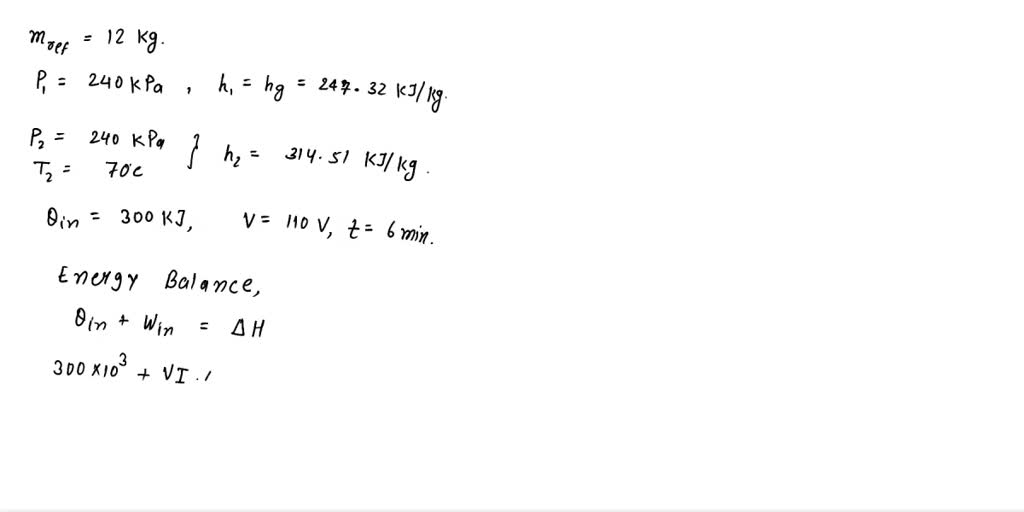 m_ref = 12 kg.
P₁ = 240 kPa , h₁ = hg = 247.32 KJ/kg.
P₂ = 240 kPa } h₂ = 314.51 KJ/kg.
T₂ = 70°C
Qin = 300 KJ, V = 110 V, t = 6 min.
Energy Balance,
Qin + Win = ΔH
300 ×10³ + VI .